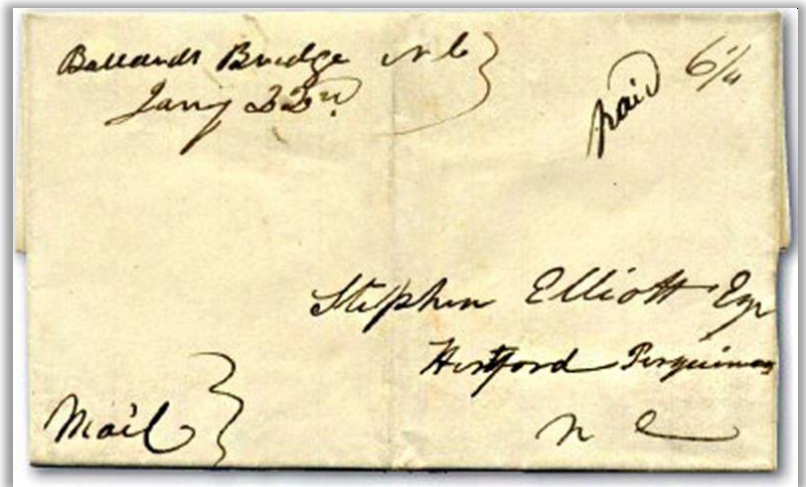 Ballards Bridge N C
Jany 22nd
paid 6¼
Stephen Elliott Esqr
Hertford Perquimons
N C
Mail